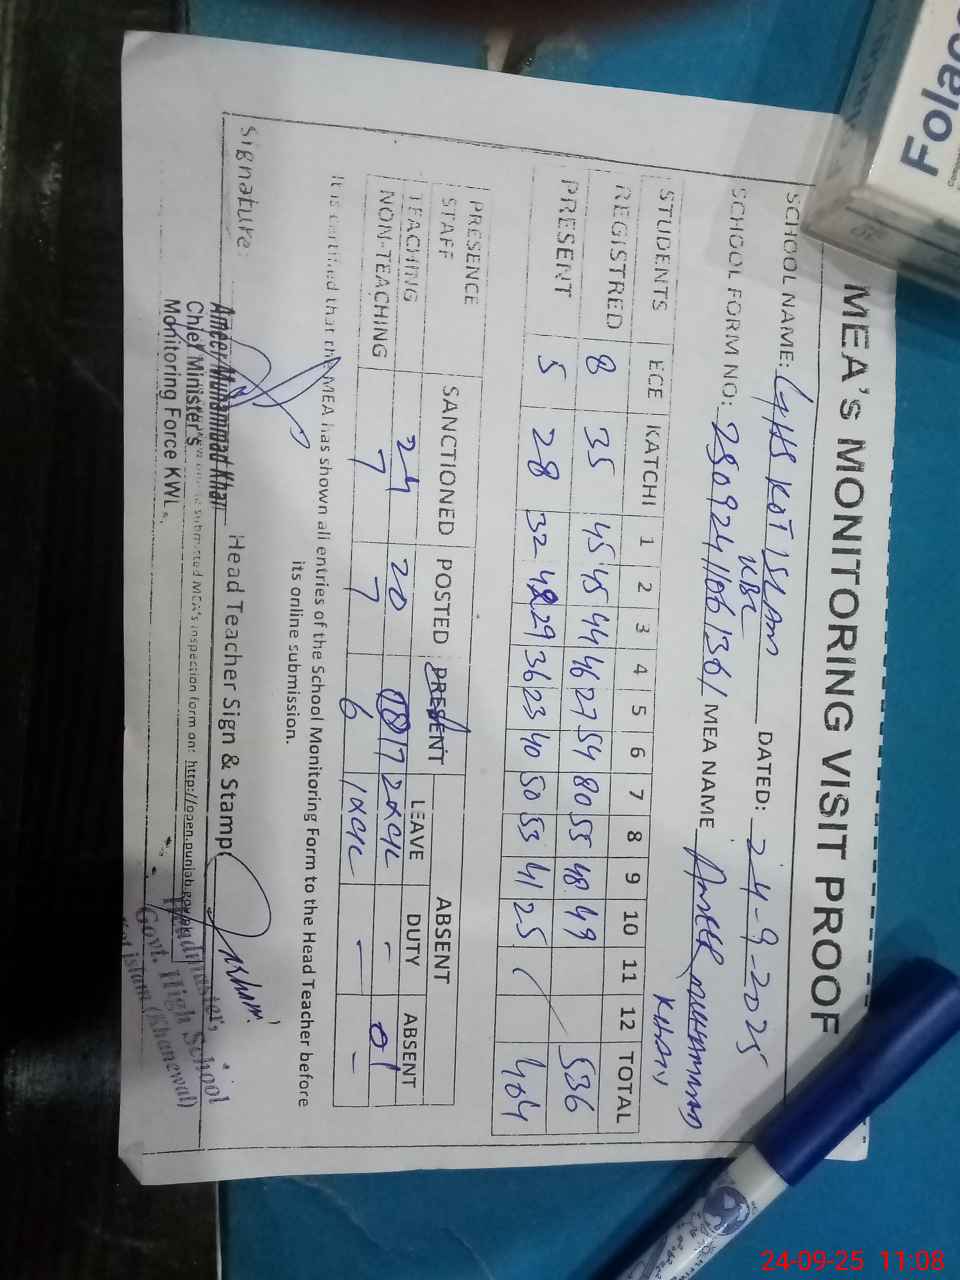 MEA'S MONITORING VISIT PROOF
SCHOOL NAME: GHS KOT ISLAM KBL DATED: 24-9-2025
SCHOOL FORM NO: MEA NAME Ameer Muhammad Khan
STUDENTS ECE KATCHI 1 2 3 4 5 6 7 8 9 10 11 12 TOTAL
REGISTRED 8 35 45 45 44 46 27 54 80 55 48 49 536
PRESENT 5 28 32 42 29 36 23 40 50 53 41 25 404
PRESENCE
STAFF SANCTIONED POSTED PRESENT ABSENT
LEAVE DUTY ABSENT
TEACHING 24 20 17 2xc/L - 01
NON-TEACHING 7 7 6 1xc/L - -
It is certified that the MEA has shown all entries of the School Monitoring Form to the Head Teacher before
its online submission.
Signature: Head Teacher Sign & Stamp
Ameer Muhammad Khan
Chief Minister's
Monitoring Force KWL.
submitted MEA's inspection form on: http://open.punjab.gov.pk
Headmaster,
Govt. High School
Kot islam (Khanewal)
Folac
24-09-25 11:08